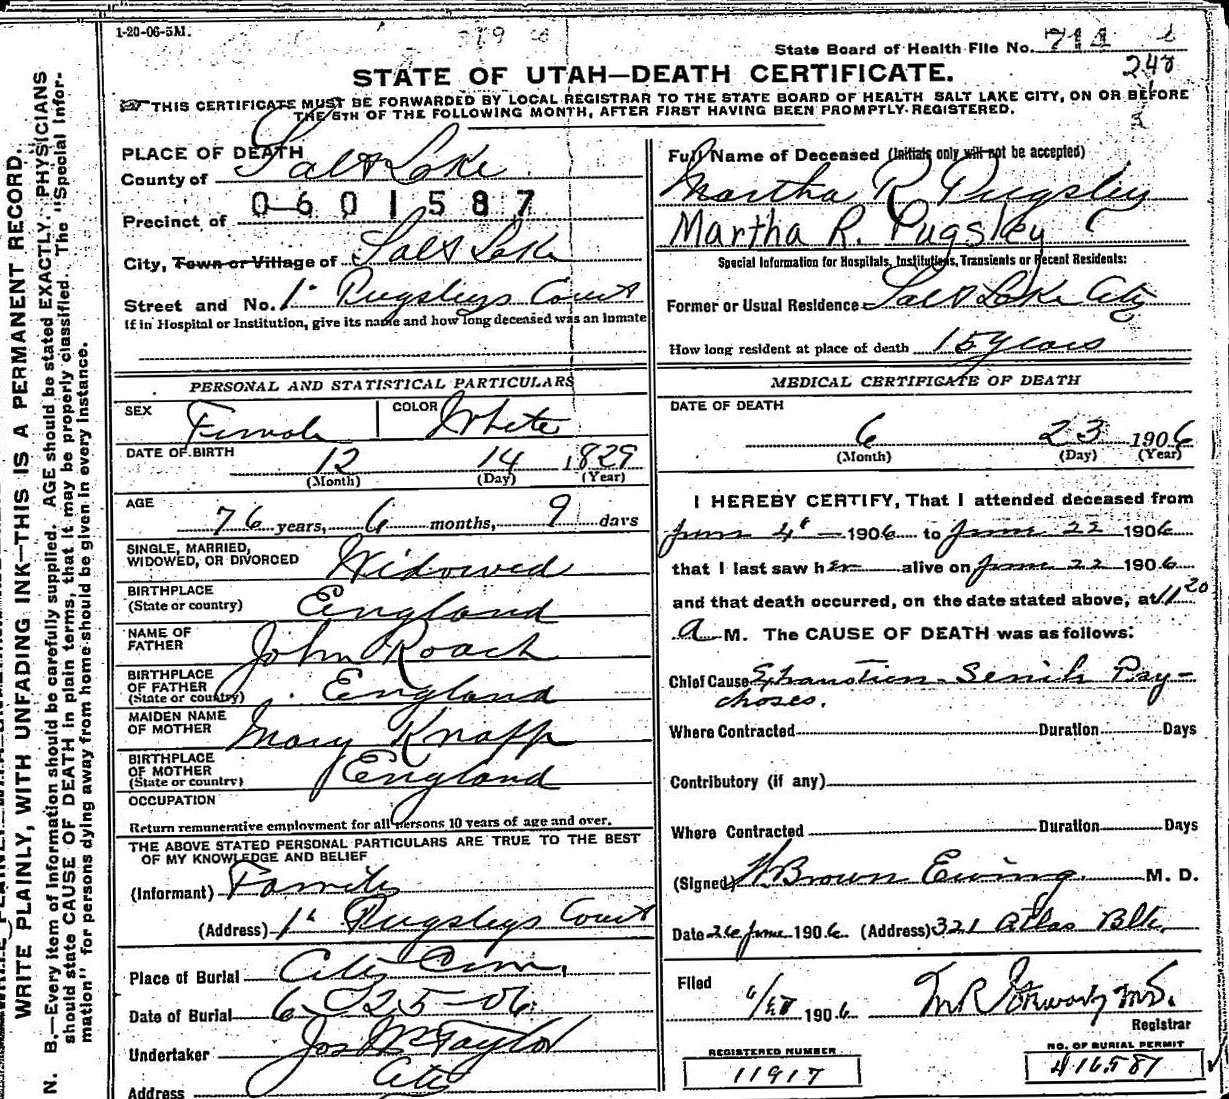 1-20-06-5M.
State Board of Health File No. 714
248
STATE OF UTAH—DEATH CERTIFICATE.
THIS CERTIFICATE MUST BE FORWARDED BY LOCAL REGISTRAR TO THE STATE BOARD OF HEALTH SALT LAKE CITY, ON OR BEFORE
THE 5TH OF THE FOLLOWING MONTH, AFTER FIRST HAVING BEEN PROMPTLY REGISTERED.
WRITE PLAINLY, WITH UNFADING INK—THIS IS A PERMANENT RECORD.
N. B.—Every item of information should be carefully supplied. AGE should be stated EXACTLY. PHYSICIANS
should state CAUSE OF DEATH in plain terms, that it may be properly classified. The "Special Infor-
mation" for persons dying away from home should be given in every instance.
PLACE OF DEATH
County of Salt Lake
0601587
Precinct of
City, Town or Village of Salt Lake
Street and No. 1 Pugsleys Court
If in Hospital or Institution, give its name and how long deceased was an inmate
PERSONAL AND STATISTICAL PARTICULARS
SEX Female COLOR White
DATE OF BIRTH 12 14 1829
(Month) (Day) (Year)
AGE 76 years, 6 months, 9 days
SINGLE, MARRIED,
WIDOWED, OR DIVORCED Widowed
BIRTHPLACE
(State or country) England
NAME OF
FATHER John Roach
BIRTHPLACE
OF FATHER
(State or country) England
MAIDEN NAME
OF MOTHER Mary Knapp
BIRTHPLACE
OF MOTHER
(State or country) England
OCCUPATION
Return remunerative employment for all persons 10 years of age and over.
THE ABOVE STATED PERSONAL PARTICULARS ARE TRUE TO THE BEST
OF MY KNOWLEDGE AND BELIEF
(Informant) Family
(Address) 1 Pugsleys Court
Place of Burial City Cem.
Date of Burial 6-25-06
Undertaker Jos Wm Taylor
Address City
Full Name of Deceased (Initials only will not be accepted)
Martha R Pugsley
Martha R. Pugsley
Special Information for Hospitals, Institutions, Transients or Recent Residents:
Former or Usual Residence Salt Lake City
How long resident at place of death 15 years
MEDICAL CERTIFICATE OF DEATH
DATE OF DEATH
6 23 1906
(Month) (Day) (Year)
I HEREBY CERTIFY, That I attended deceased from
June 4 1906 to June 22 1906
that I last saw her alive on June 22 1906
and that death occurred, on the date stated above, at 11 20
a M. The CAUSE OF DEATH was as follows:
Chief Cause Exhaustion Senile Psy-
choses.
Where Contracted Duration Days
Contributory (if any)
Where Contracted Duration Days
(Signed) W. Brown Ewing M. D.
Date 26 June 1906 (Address) 321 Atlas Blk.
Filed 1906
Registrar
REGISTERED NUMBER
11917
NO. OF BURIAL PERMIT
416587